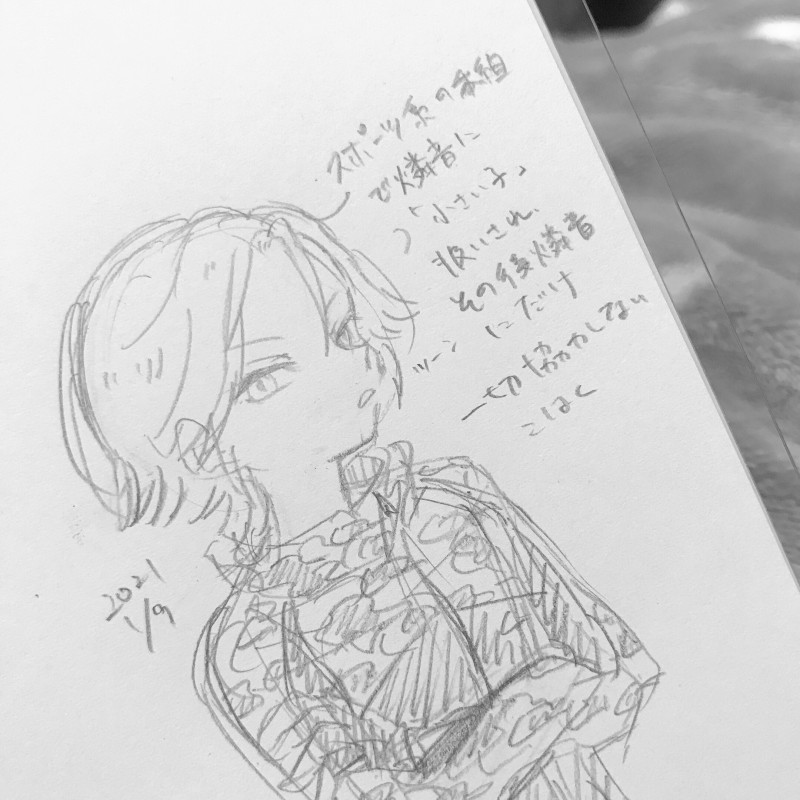 スポーツ系の番組
で燐音に
「小さい子」
扱いされ、
その後燐音
にだけ
一切協力しない
こはく
ツーン
2021
1/9